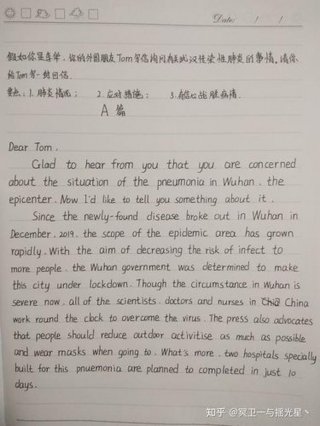 Date: / /
假如你是李华,你的外国朋友Tom写信询问有关武汉传染性肺炎的事情,请你
给Tom写一封回信.
要点:1.肺炎情况; 2.应对措施; 3.有信心战胜病情.
A 篇
Dear Tom.
Glad to hear from you that you are concerned
about the situation of the pneumonia in Wuhan. the
epicenter. Now I'd like to tell you something about it.
Since the newly-found disease broke out in Wuhan in
December. 2019. the scope of the epidemic area has grown
rapidly. With the aim of decreasing the risk of infect to
more people. the Wuhan government was determined to make
this city under lockdown. Though the circumstance in Wuhan is
severe now. all of the scientists. doctors and nurses in China
work round the clock to overcome the virus. The press also advocates
that people should reduce outdoor activitise as much as possible
and wear masks when going to. What's more. two hospitals specially
built for this pnuemonia are planned to completed in just 10
days.
知乎 @冥卫一与摇光星丶